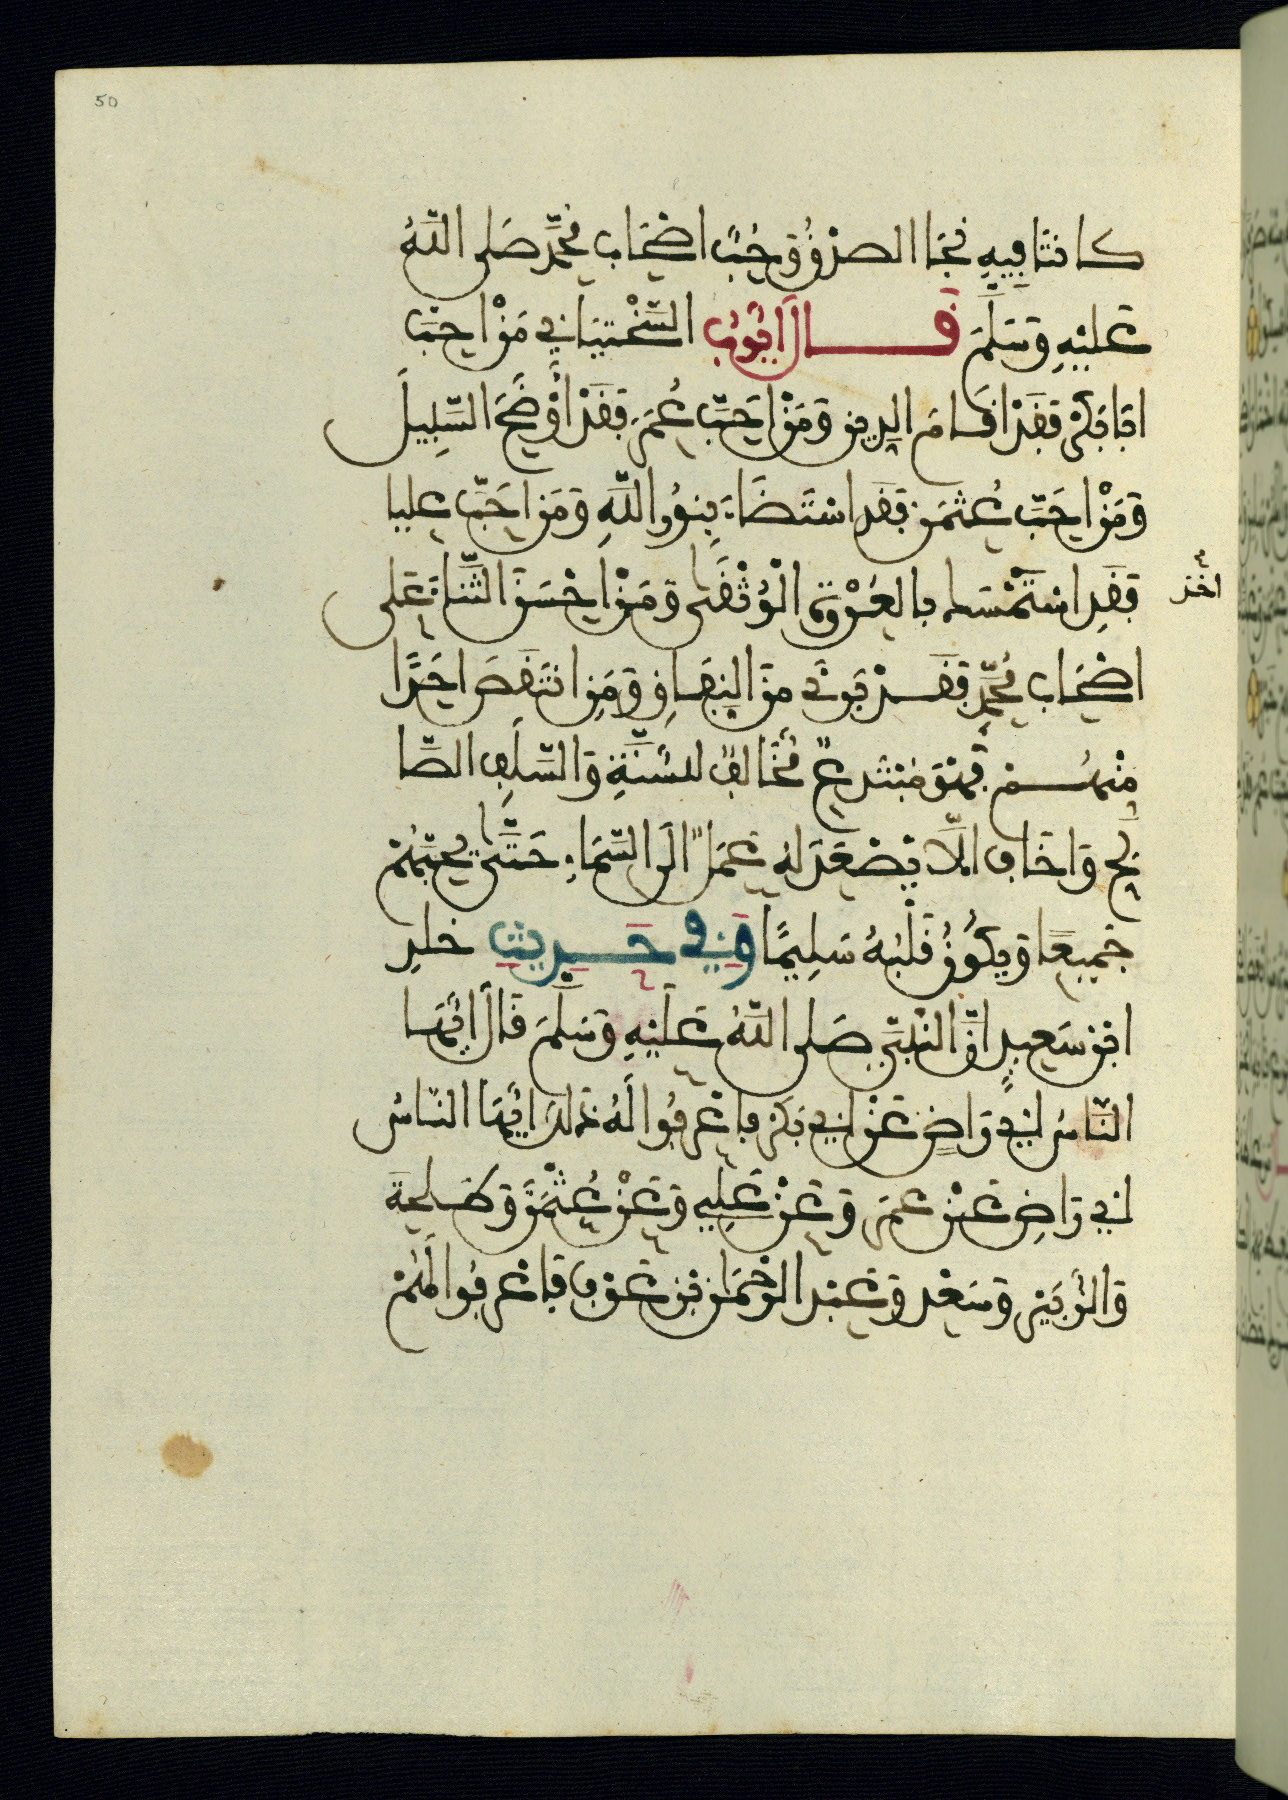 50
كانتا فيه نجا الصدق وحب اصحاب محمد صلى الله
عليه وسلم قال ايوب السختياني من احب
ابا بكر فقد اقام الدين ومن احب عمر فقد أوضح السبيل
ومن احب عثمن فقد استضاء بنور الله ومن احب عليا
اخذ
فقد استمسك بالعروة الوثقى ومن احسن الثناء على
اصحاب محمد فقد برئ من النفاق ومن انتقص احدا
منهم فهو مبتدع مخالف للسنة والسلف الصا
لح واخاف الا يصعد له عمل الى السماء حتى يحبهم
جميعا ويكون قلبه سليما وفي حديث خلد
ابن سعيد ان النبي صلى الله عليه وسلم قال ايها
الناس اني راض عن ابي بكر فاعرفوا له ذلك ايها الناس
اني راض عن عمر وعن علي وعن عثمن وطلحة
والزبير وسعد وعبد الرحمان بن عوف فاعرفوا لهم